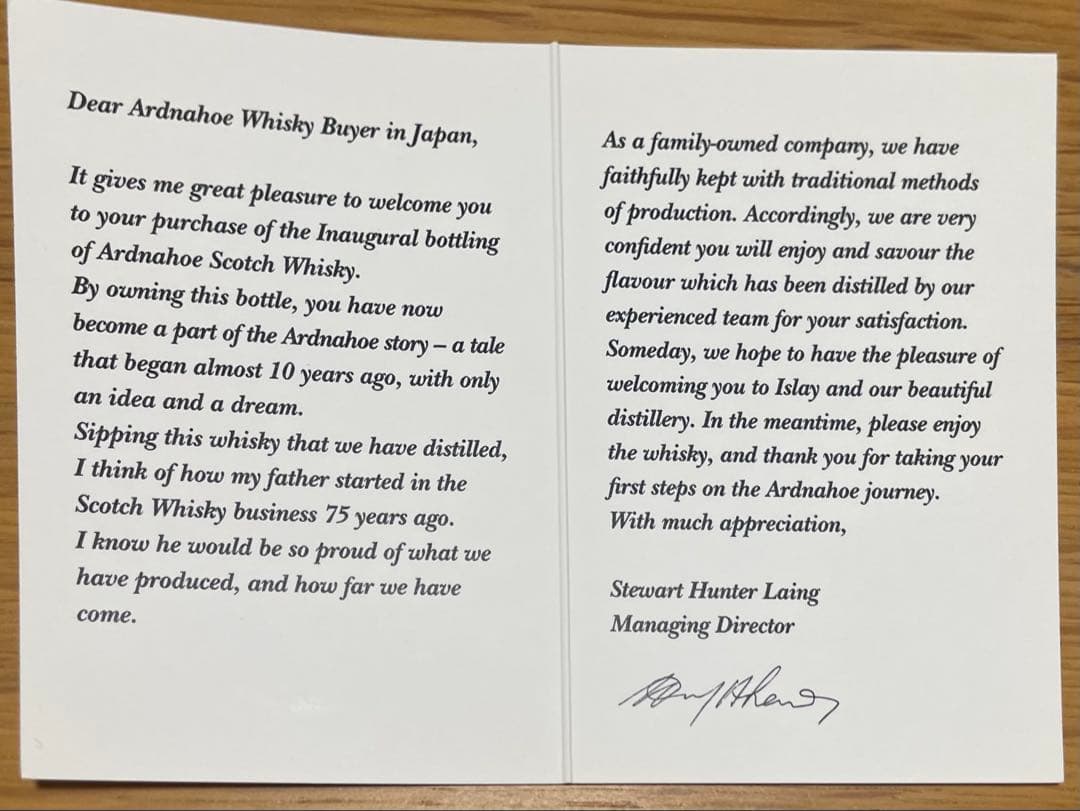 Dear Ardnahoe Whisky Buyer in Japan,
It gives me great pleasure to welcome you
to your purchase of the Inaugural bottling
of Ardnahoe Scotch Whisky.
By owning this bottle, you have now
become a part of the Ardnahoe story – a tale
that began almost 10 years ago, with only
an idea and a dream.
Sipping this whisky that we have distilled,
I think of how my father started in the
Scotch Whisky business 75 years ago.
I know he would be so proud of what we
have produced, and how far we have
come.
As a family-owned company, we have
faithfully kept with traditional methods
of production. Accordingly, we are very
confident you will enjoy and savour the
flavour which has been distilled by our
experienced team for your satisfaction.
Someday, we hope to have the pleasure of
welcoming you to Islay and our beautiful
distillery. In the meantime, please enjoy
the whisky, and thank you for taking your
first steps on the Ardnahoe journey.
With much appreciation,
Stewart Hunter Laing
Managing Director